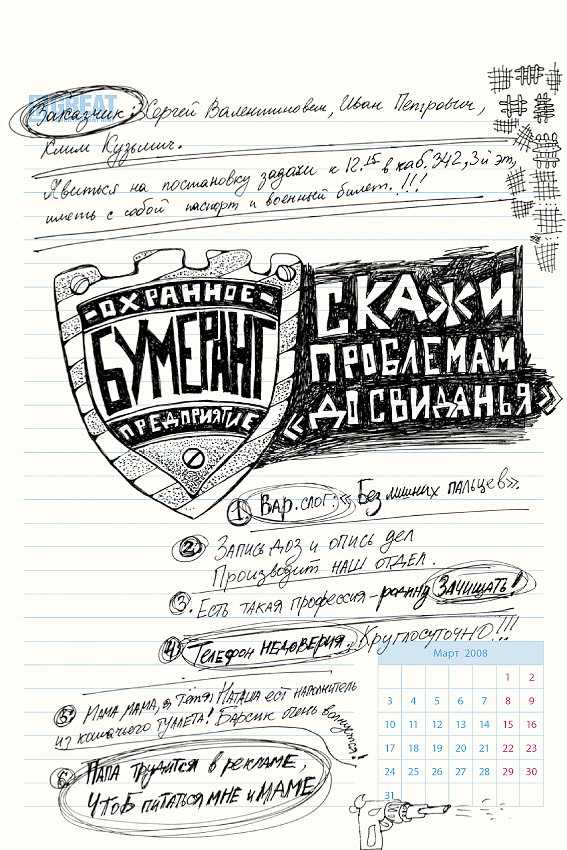 GREAT
Заказчик: Сергей Валентинович, Иван Петрович,
Клим Кузьмич.
Явиться на постановку задачи к 12.15 в каб. 342, 3й эт,
иметь с собой паспорт и военный билет.!!!
-ОХРАННОЕ-
БУМЕРАНГ
ПРЕДПРИЯТИЕ
СКАЖИ
ПРОБЛЕМАМ
«ДО СВИДАНЬЯ»
1. ВАР. СЛОГ: «Без лишних пальцев».
2. Запись доз и опись дел
Производит наш отдел.
3. Есть такая профессия – родину ЗАЧИЩАТЬ!
4. Телефон НЕДОВЕРИЯ. Круглосуточно!!!
5. Мама мама, а тётя Наташа ест наполнитель
из кошачего туалета! Барсик очень волнуется!
6. Папа трудится в рекламе,
чтоб питаться мне и маме
Март 2008
1 2
3 4 5 6 7 8 9
10 11 12 13 14 15 16
17 18 19 20 21 22 23
24 25 26 27 28 29 30
31